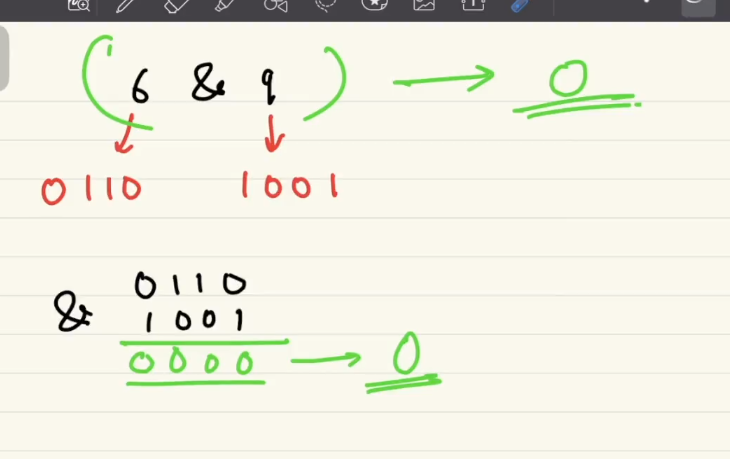 ( 6 & 9 ) → 0
0110 1001
0110
& 1001
0000 → 0